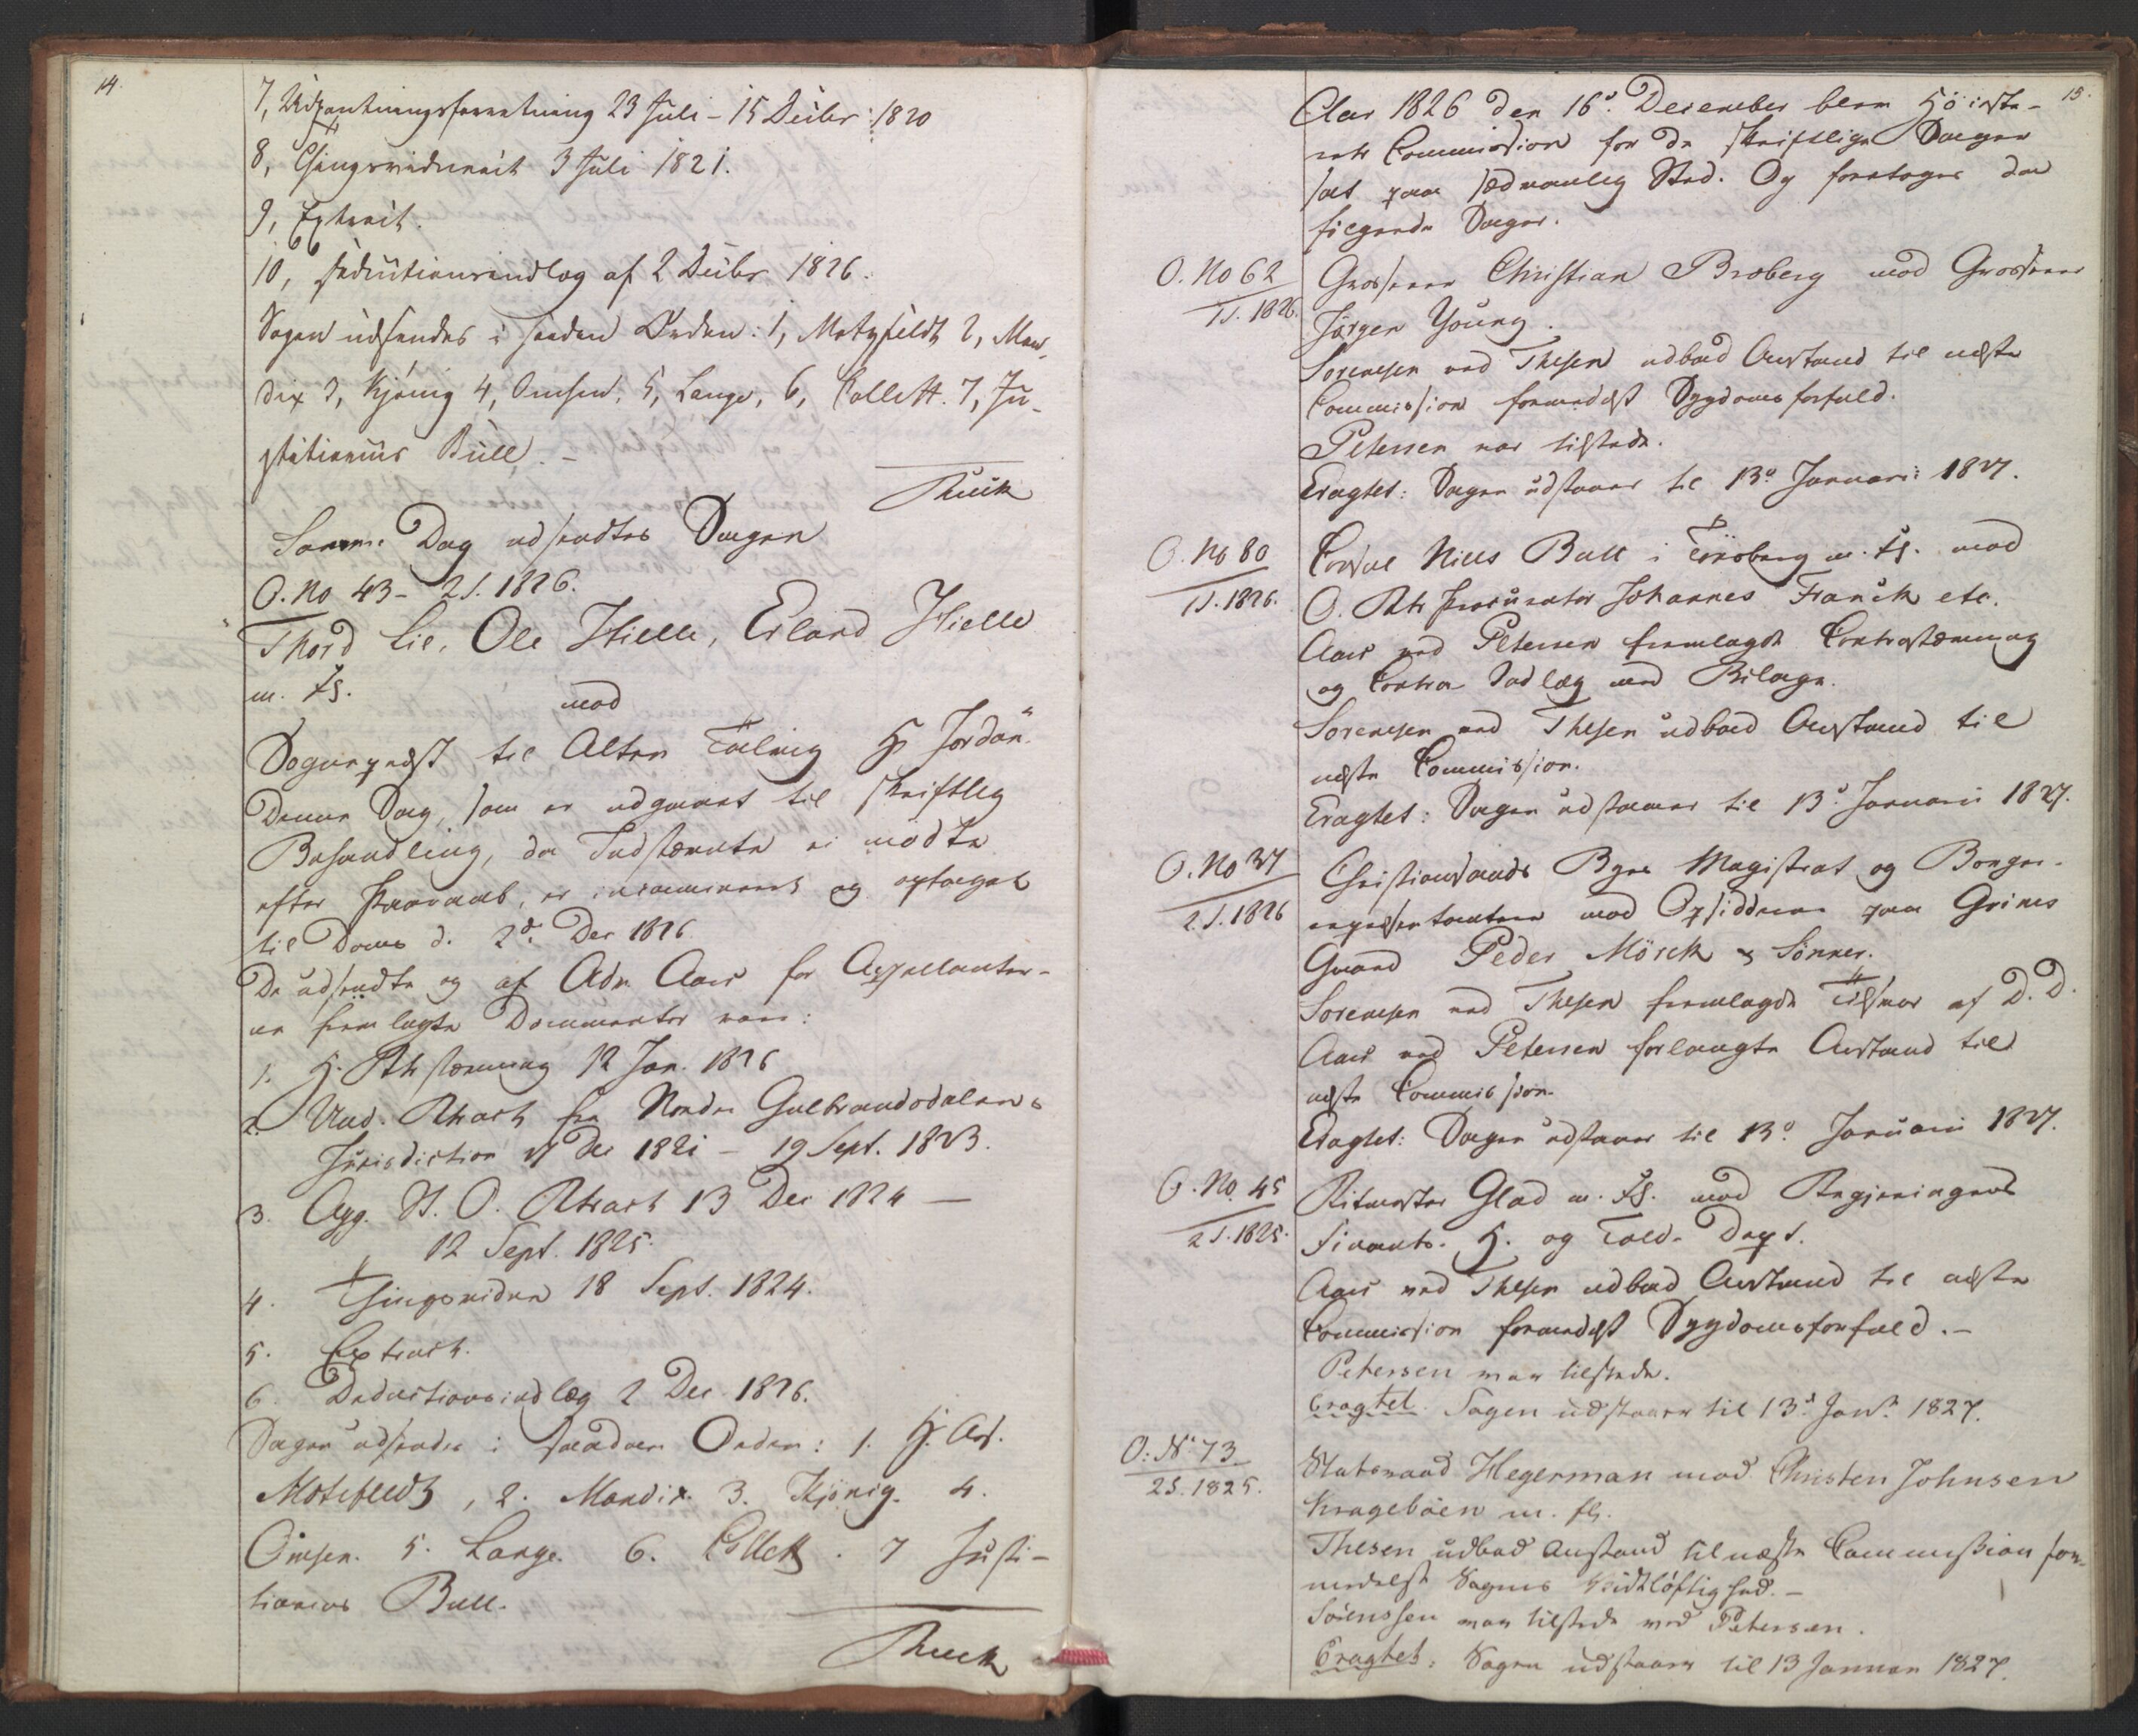 14.
7, Udpantningsforretning 23 Juli – 15 Decbr: 1820
8, Thingsvidnerit 3 Juli 1821.
9, Extract.
10, Deductionsindlæg af 2 Decbr 1826.
Sagen udsendes i saadan Orden: 1, Motzfeldt 2, Man-
dix 3, Kjönig 4, Omsen, 5, Lange, 6, Collett. 7, Ju-
stitiarius Bull. –
Samme Dag udsendtes Sagen
O. No 43 – 2 S. 1826.
Thord Lie, Ole Hielle, Erland Hielle
m. fl.
mod
Sogneprest til Alten Tallvig Hr Jordan.
Denne Sag, som er udgaaet til skriftlig
Behandling, da Indstævnte ei mödte
efter Paaraab, er incamineret og optaget
til Doms d. 2d. Dec 1826
De udsendte og af Adv. Aars for Appellanter-
ne fremlagte Documenter vare:
1. H. Rts stævning 12 Jan. 1826
2. Und. Rtsact fra Nordre Gulbrandsdalens
Jurisdiction 17 Dec 1821 – 19 Sept. 1823.
3. Agg. St. O. Rtsact 13 Dec 1824 –
12 Sept. 1825.
4. Thingsvidne 18 Sept. 1824.
5. Extract.
6. Deductionsindlæg 2 Dec 1826.
Sagen udsendes i saadan Orden: 1. H. Ass.
Motzfeldt, 2. Mandix. 3. Kjönig. 4.
Omsen. 5. Lange. 6. Collett. 7 Justi-
tiarius Bull.
15.
Aar 1826 den 16d. December blev Höieste-
rets Commission for de skriftlige Sager
sat paa sædvanlig Sted. Og foretoges da
fölgende Sager.
O. No 62
1 S. 1826.
Grosserer Christian Broberg mod Grosserer
Jörgen Young.
Sorensen ved Thesen udbad Anstand til næste
Commission formedelst Sygdomsforfald.
Petersen var tilstede.
Eragtet: Sagen udstaaer til 13d Januari 1827.
O. No 80
1 S. 1826.
Consul Niels Bull i Tönsberg m. fl. mod
O. Rts Procurator Johannes Franck etc.
Aars ved Petersen fremlagde Contrastævning
og Contra-Indlæg med Bilage.
Sorensen ved Thesen udbad Anstand til
næste Commission.
Eragtet: Sagen udstaaer til 13d. Januarii 1827.
O. No 37
2 S. 1826
Christiansands Byes Magistrat og Borger-
repræsentantere mod Opsidderne paa Grims
Gaard Peder Mörck & Sönner.
Sorensen ved Thesen fremlagde Tilsvar af D. D.
Aars ved Petersen forlangte Anstand til
næste Commission.
Eragtet: Sagen udstaaer til 13d. Januarii 1827.
O. No. 45
2 S. 1825.
Ritmester Glad m. fl. mod Regjeringens
Finants- H. og Told- Dept.
Aars ved Thesen udbad Anstand til næste
Commission formedelst Sygdomsforfald. –
Petersen var tilstede.
Eragtet. Sagen udstaaer til 13d Janr. 1827.
O: No 73
2 S. 1825.
Statsraad Hegerman mod Christen Johnsen
Krageböen m. fl.
Thesen udbad Anstand til næste Commission for-
medelst Sagens Vidtlöftighed. –
Sörenssen var tilstede ved Petersen.
Eragtet: Sagen udstaaer til 13 Januar 1827.